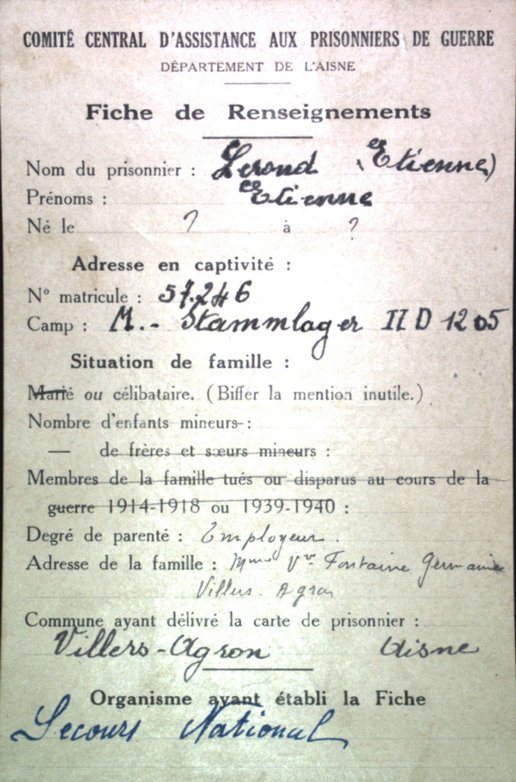 COMITÉ CENTRAL D'ASSISTANCE AUX PRISONNIERS DE GUERRE
DÉPARTEMENT DE L'AISNE
Fiche de Renseignements
Nom du prisonnier : Lerond (Etienne)
Prénoms : Etienne
Né le ? à ?
Adresse en captivité :
N° matricule : 57.246
Camp : M.- Stammlager II D 1205
Situation de famille :
Marié ou célibataire. (Biffer la mention inutile.)
Nombre d'enfants mineurs :
— de frères et sœurs mineurs :
Membres de la famille tués ou disparus au cours de la
guerre 1914-1918 ou 1939-1940 :
Degré de parenté : Employeur.
Adresse de la famille : Mme Vve Fontaine Germaine
Villers-Agron
Commune ayant délivré la carte de prisonnier :
Villers-Agron Aisne
Organisme ayant établi la Fiche
Secours National